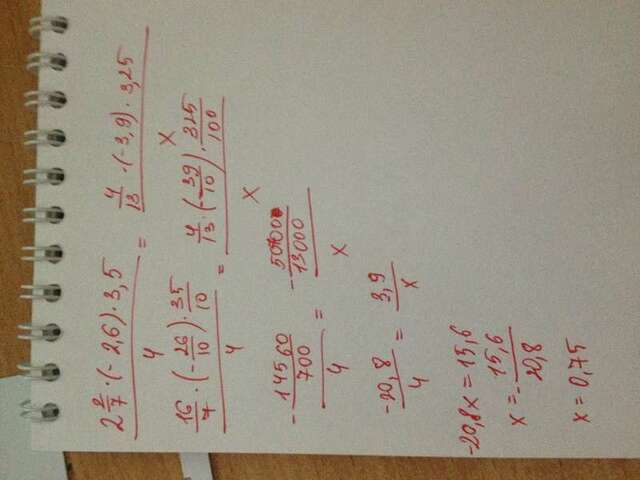 2 2/7 · (- 2,6) · 3,5 / 4 = 4/13 · (-3,9) · 3,25 / x
16/7 · (- 26/10) · 35/10 / 4 = 4/13 · (- 39/10) · 325/100 / x
- 14560/700 / 4 = - 50700/13000 / x
-20,8 / 4 = 3,9 / x
-20,8x = 15,6
x = - 15,6 / 20,8
x = 0,75